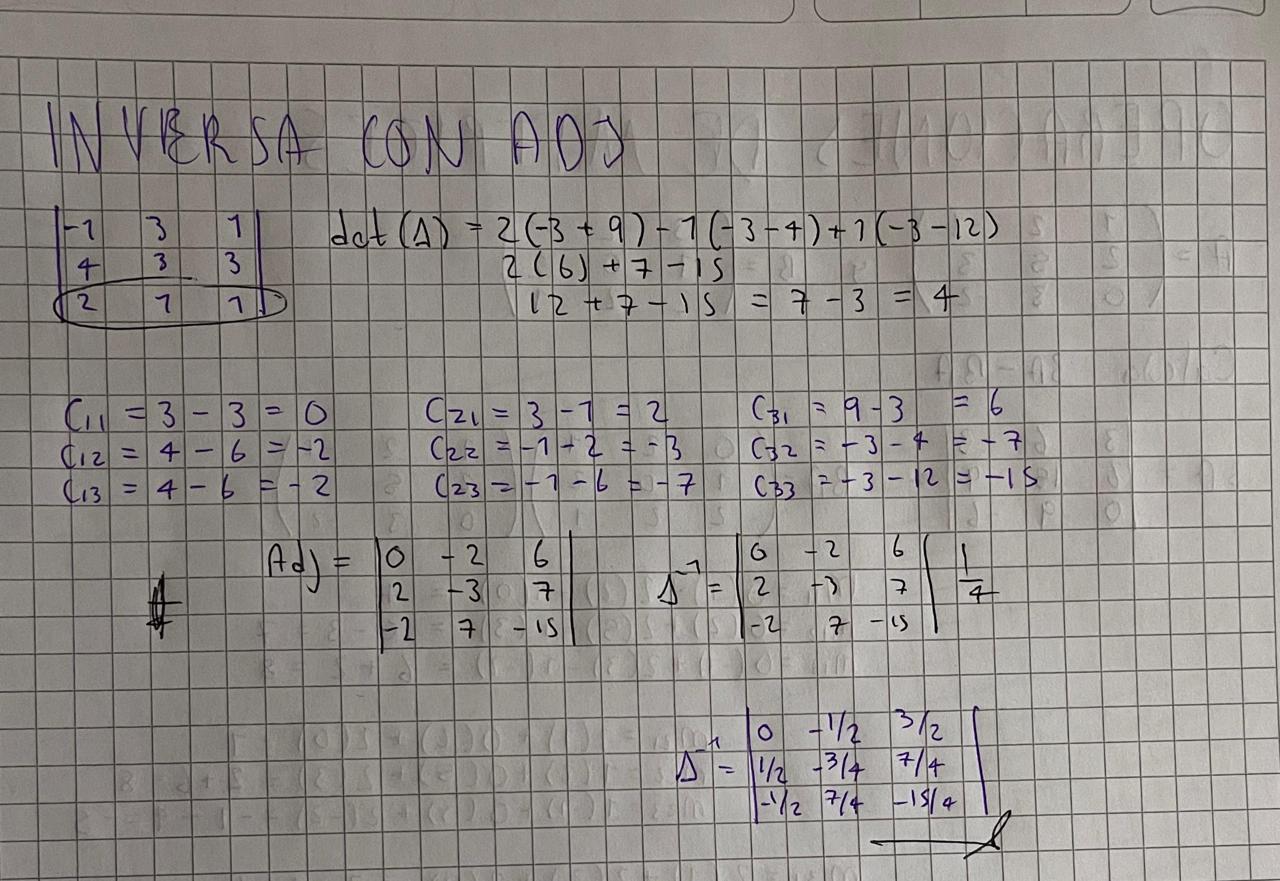 INVERSA CON ADJ
|-1 3 1|
|4 3 3|
|2 1 1|
det(A) = 2(-3+9)-1(-3-4)+1(-3-12)
2(6)+7-15
12+7-15 = 7-3 = 4
C11 = 3-3 = 0
C12 = 4-6 = -2
C13 = 4-6 = -2
C21 = 3-1 = 2
C22 = -1-2 = -3
C23 = -1-6 = -7
C31 = 9-3 = 6
C32 = -3-4 = -7
C33 = -3-12 = -15
Adj = |0 -2 6|
|2 -3 7|
|-2 7 -15|
A⁻¹ = |0 -2 6| 1/4
|2 -3 7|
|-2 7 -15|
A⁻¹ = |0 -1/2 3/2|
|1/2 -3/4 7/4|
|-1/2 7/4 -15/4|